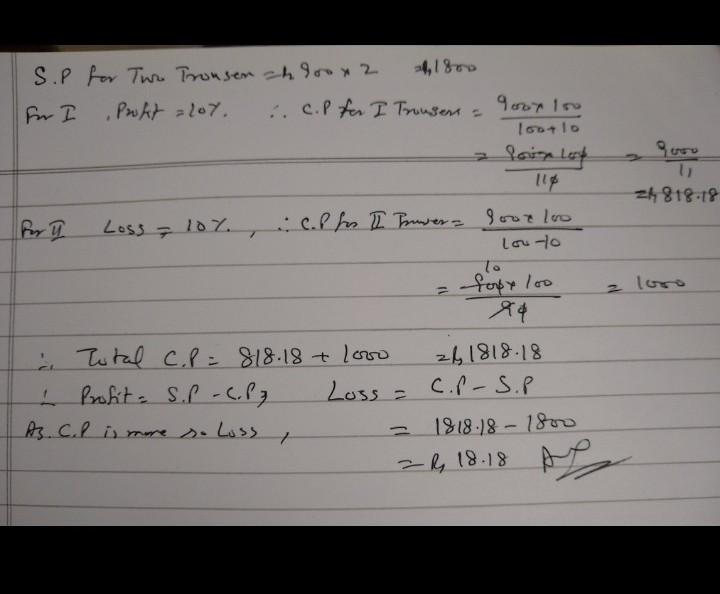 S.P for Two Trouser = Rs 900 x 2 = Rs 1800
For I , Profit = 10%. ∴ C.P for I Trouser = 900 x 100 / 100+10
= 900 x 100 / 110 = 9000 / 11
= Rs 818.18
For II Loss = 10%. , ∴ C.P for II Trouser = 900 x 100 / 100-10
10
= 900 x 100 / 90 = 1000
∴ Total C.P = 818.18 + 1000 = Rs 1818.18
∴ Profit = S.P - C.P, Loss = C.P - S.P
As C.P is more so Loss , = 1818.18 - 1800
= Rs 18.18 Ans